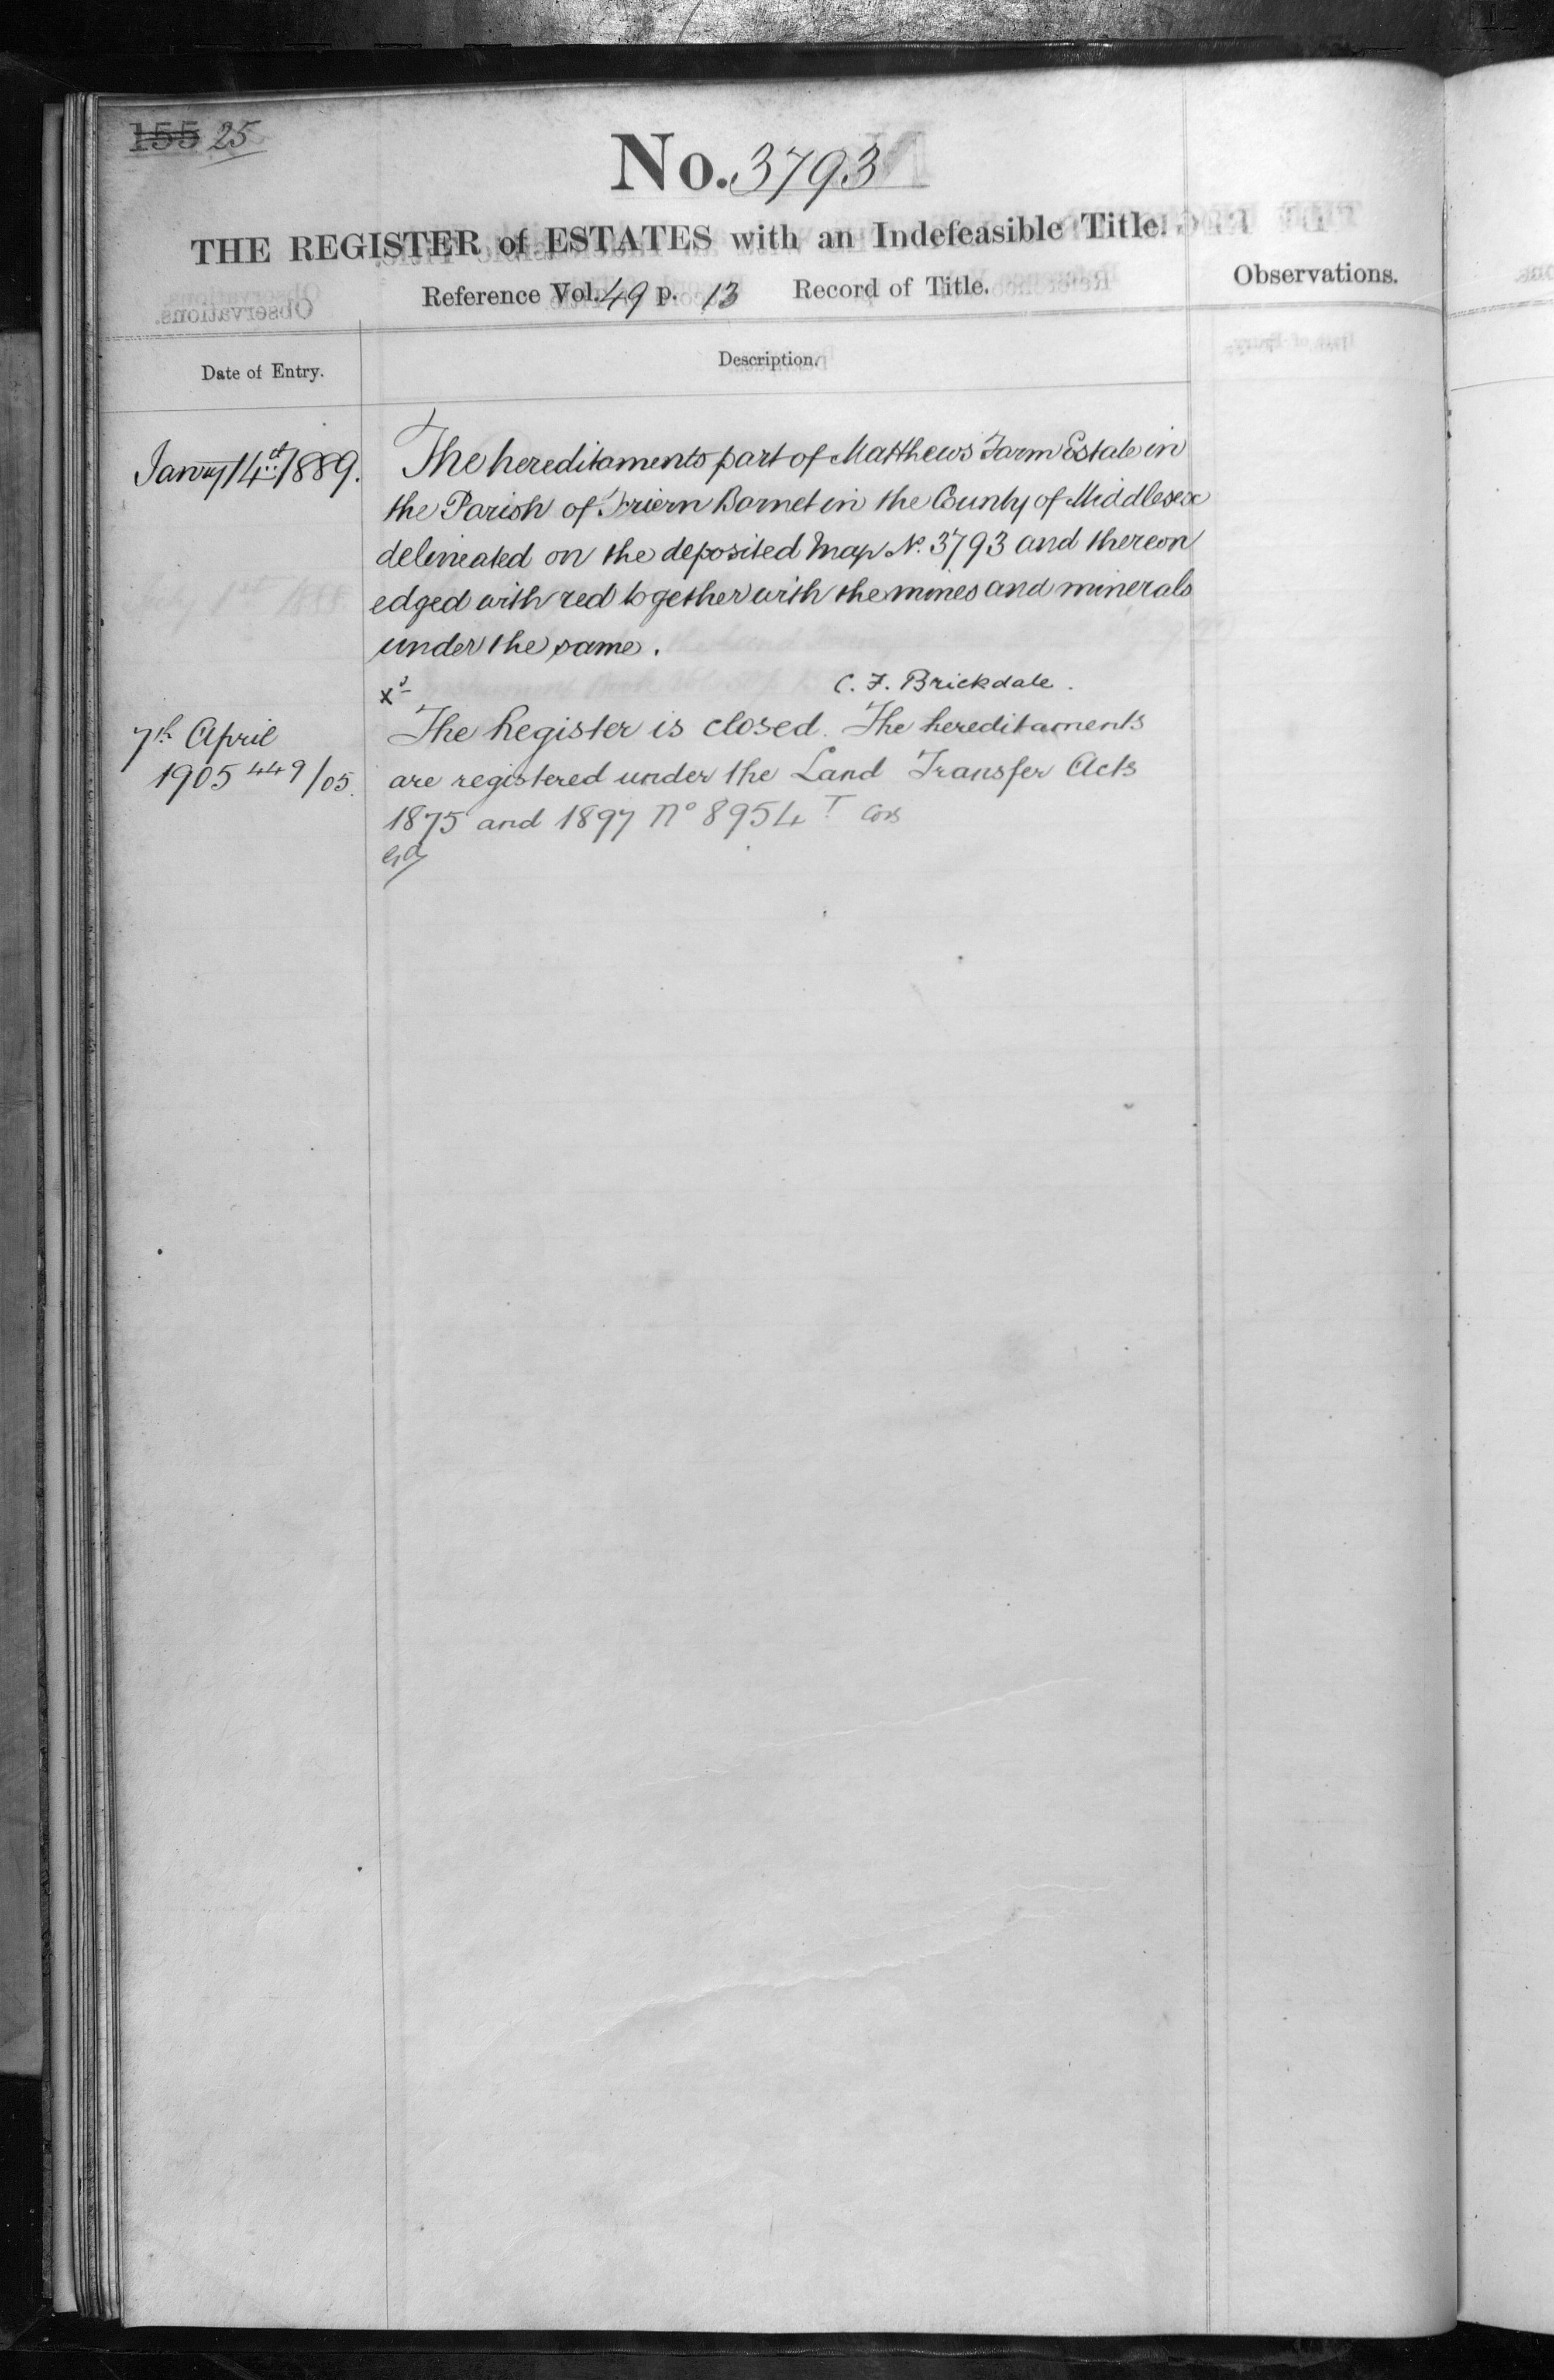 155 25
No. 3793
THE REGISTER of ESTATES with an Indefeasible Title.
Reference Vol. 49 p. 13 Record of Title.
Observations.
Date of Entry.
Description.
Janry 14st 1889.
The hereditaments part of Matthews Farm Estate in
the Parish of Friern Barnet in the County of Middlesex
delineated on the deposited Map No. 3793 and thereon
edged with red together with the mines and minerals
under the same.
C. F. Brickdale.
7th April
1905 449/05.
The Register is closed. The hereditaments
are registered under the Land Transfer Acts
1875 and 1897 No 8954